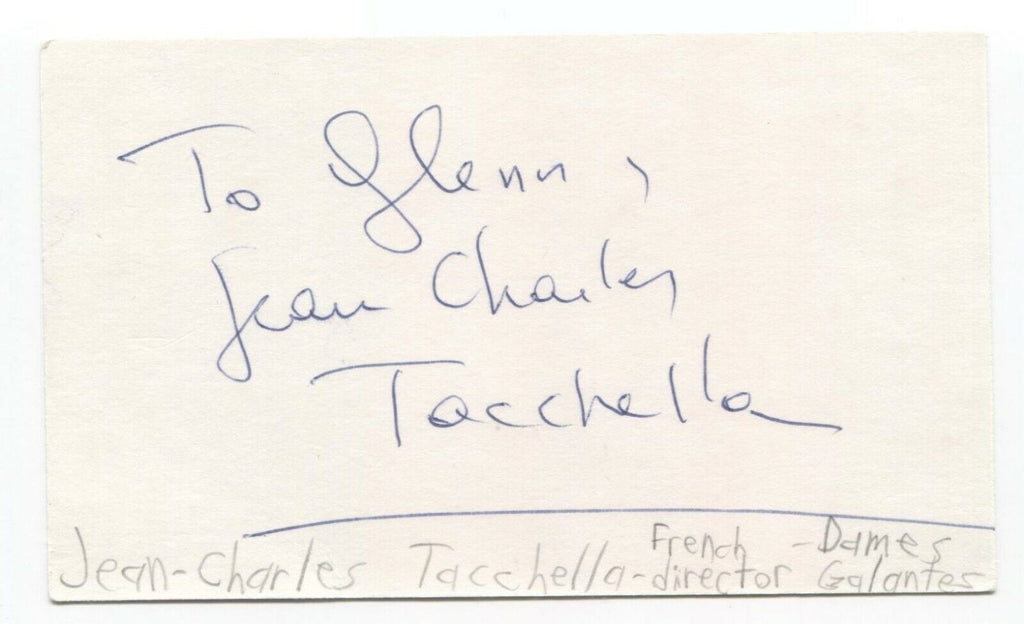 To Glenn,
Jean Charles
Tacchella
Jean-Charles Tacchella - French director - Dames Galantes